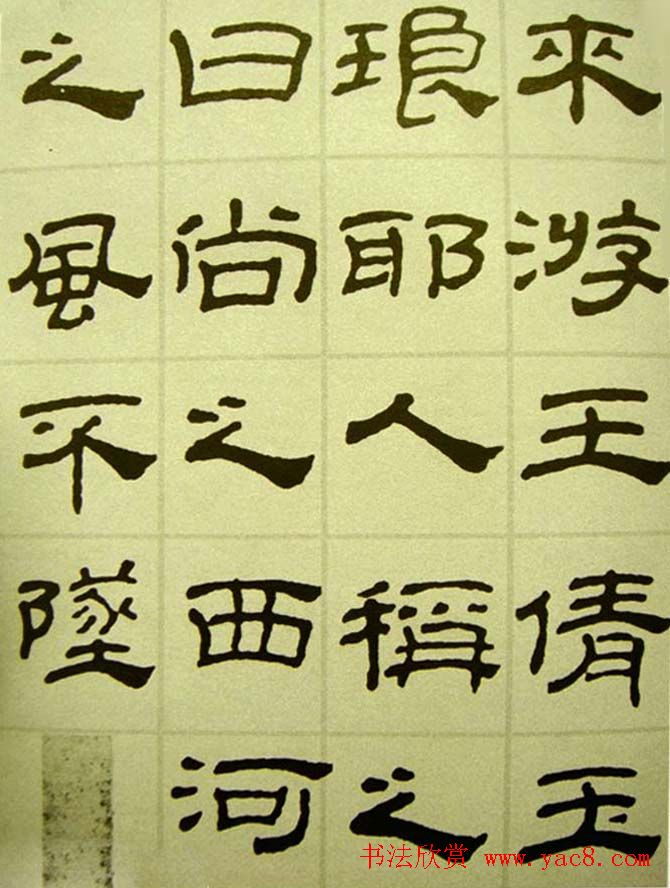 來游王倩玉
琅耶人稱之
曰尚之西河
之風不墜
书法欣赏 www.yac8.com